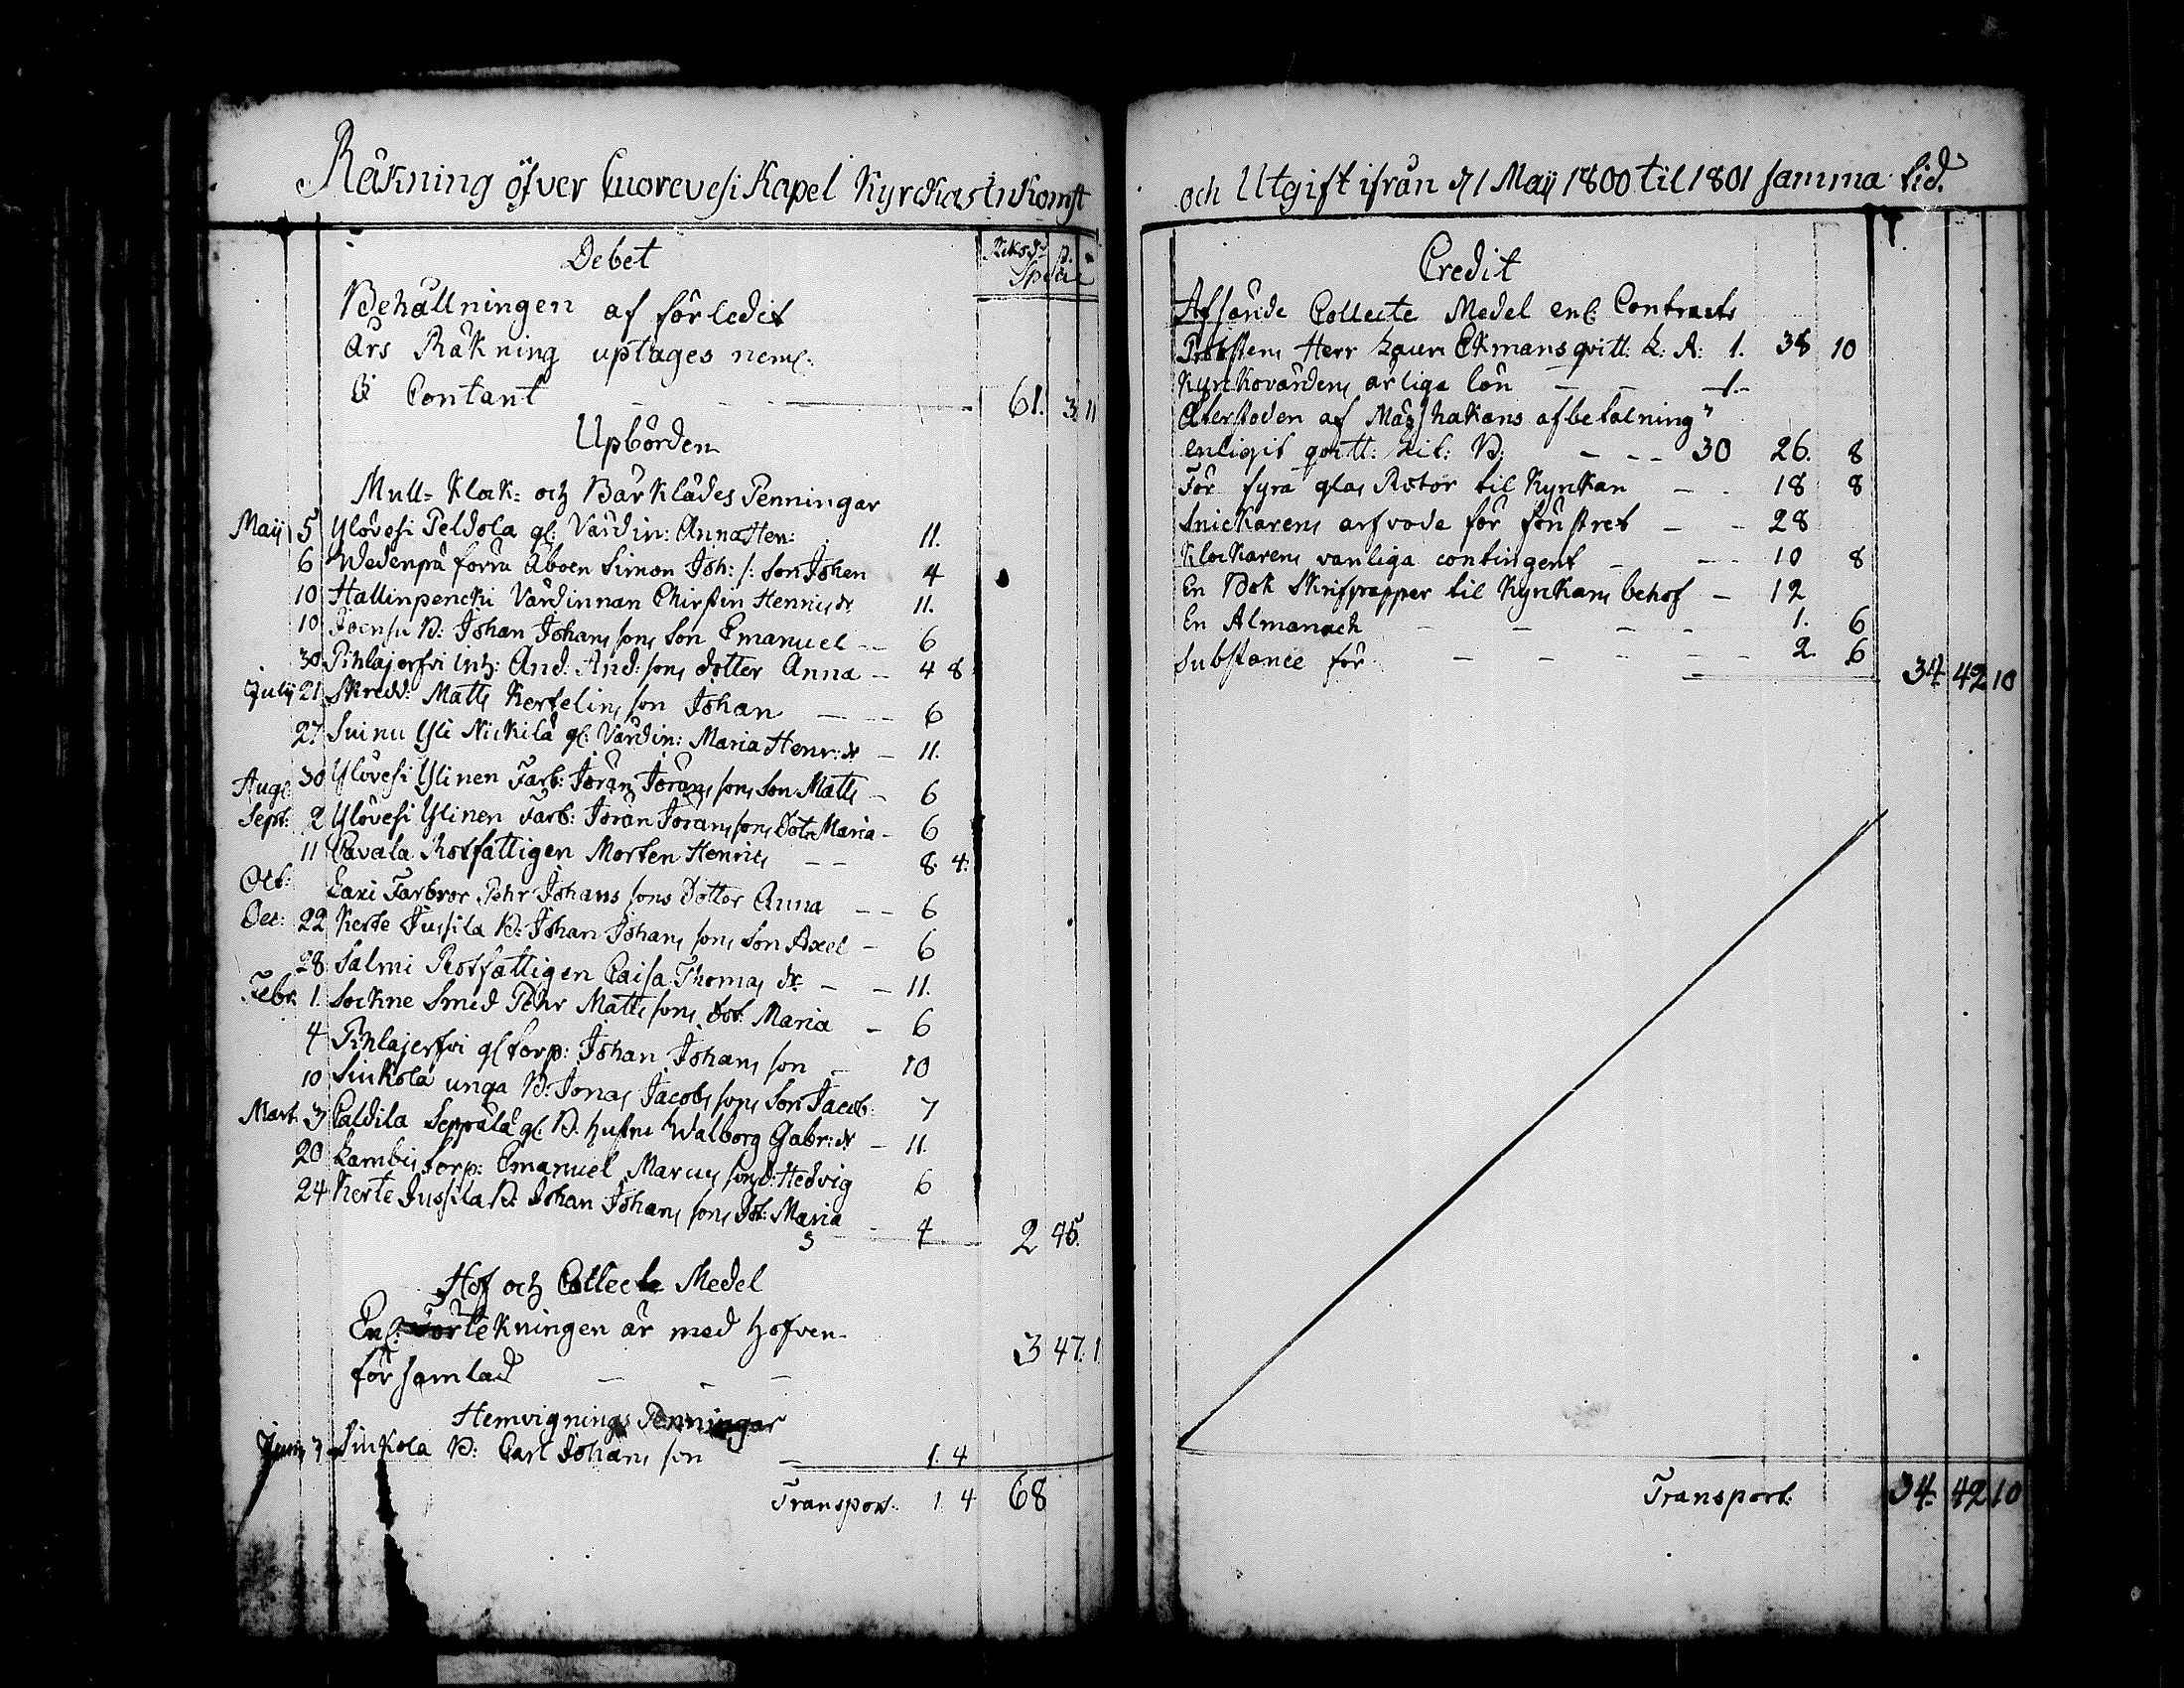 Räkning öfver Cuorevesi Kapel Kyrckas Inkomst
Debet
Riksd. ß.
Specie
Behållningen af förledit
Års Räkning uptages neml:
Contant 61. 3 11
Upbörden
Mull= Klok= och Bärklädes Penningar
Maij 5 Ylövesi Peldola gl: Värdin: Anna Hen: 11.
6 Wedenpä förra Åboen Simon Joh: s: Son Johen 4
10 Hallinpencki Värdinnan Chirstin Henrics dr 11.
10 Joensu B: Johan Johans sons Son Emanuel 6
30 Pihlajerfvi Inh: And: And: sons dotter Anna 4 8
July 21 Skredd: Matts Kertelins son Johan 6
27 Suinu Yli Nickilä gl: Värdin: Maria Henr: dr 11.
Aug: 30 Ylövesi Ylinen Farb: Jöran Jörans sons Son Matts 6
Sept: 2 Ylövesi Ylinen Farb: Jöran Jörans sons Dotr Maria 6
11 Pavala Rotfattigen Morten Henrics 8. 4.
Oct: Eaxi Farbror Pehr Johans sons Dotter Anna 6
Dec: 22 Kerte Jussila B: Johan Johans sons Son Axel 6
28 Salmi Rotfattigen Caisa Thomas dr 11.
Febr. 1. Sockne Smed Pehr Matts sons Dot: Maria 6
4 Pihlajerfvi gl torp: Johan Johans son 10
10 Sinkola unga B: Jonas Jacobs sons Son Jacob 7
Mart. 3 Paldila Seppälä gl: B. hustru Walborg Gabr: dr 11.
20 Lambis torp: Emanuel Marcus sons d: Hedvig 6
24 Kerte Jussila B: Johan Johans sons Dot: Maria 4
2 45.
Hof och Collecte Medel
Enl: Förtekningen är med hofven
församlad 3 47. 1
Hemvignings Penningar
7 Sinkola B: Carl Johans son 1. 4
Transport. 1. 4 68
och Utgift ifrån d 1 Maij 1800 til 1801 samma tid.
Credit
Afsände Collecte Medel enl: Contracts
Probstens Herr Laur: Ekmans qvitt: L: A: 1. 38 10
Kyrkovärdens årliga lön 1.
Återstoden af Mäss hakans afbetalning
enligit qvitt: Lit: B: 30 26. 8
För fyra glas Rutor til Kyrkan 18 8
Snickarens arfvode för fönstret 28
Klockarens vanliga contingent 10 8
En Bok Skrifpapper til Kyrkans behof 12
En Almanach 1. 6
Substance för 2. 6
34 42 10
Transport. 34. 42 10